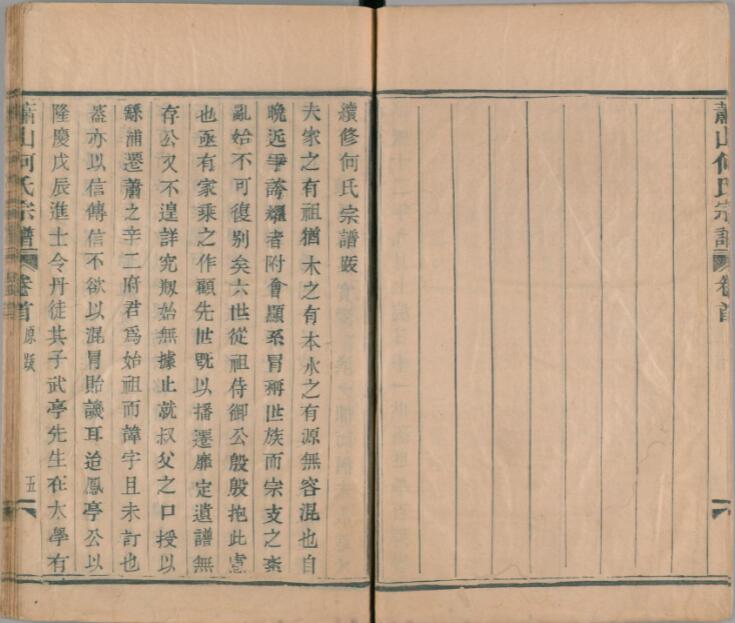 蕭山何氏宗譜 卷首
續修何氏宗譜跋
夫家之有祖猶木之有本水之有源無容混也自
晚近爭誇耀者附會顯系冒稱世族而宗支之紊
亂始不可復别矣六世從祖侍御公殷殷抱此慮
也亟有家乘之作顧先世旣以播遷靡定遺譜無
存公又不遑詳究剏始無據止就叔父之口授以
浦遷蕭之辛二府君爲始祖而諱字且未訂也
葢亦以信傳信不欲以混冒貽譏耳迨鳳亭公以
隆慶戊辰進士令丹徒其子武亭先生在太學有
蕭山何氏宗譜 卷首 原跋 五